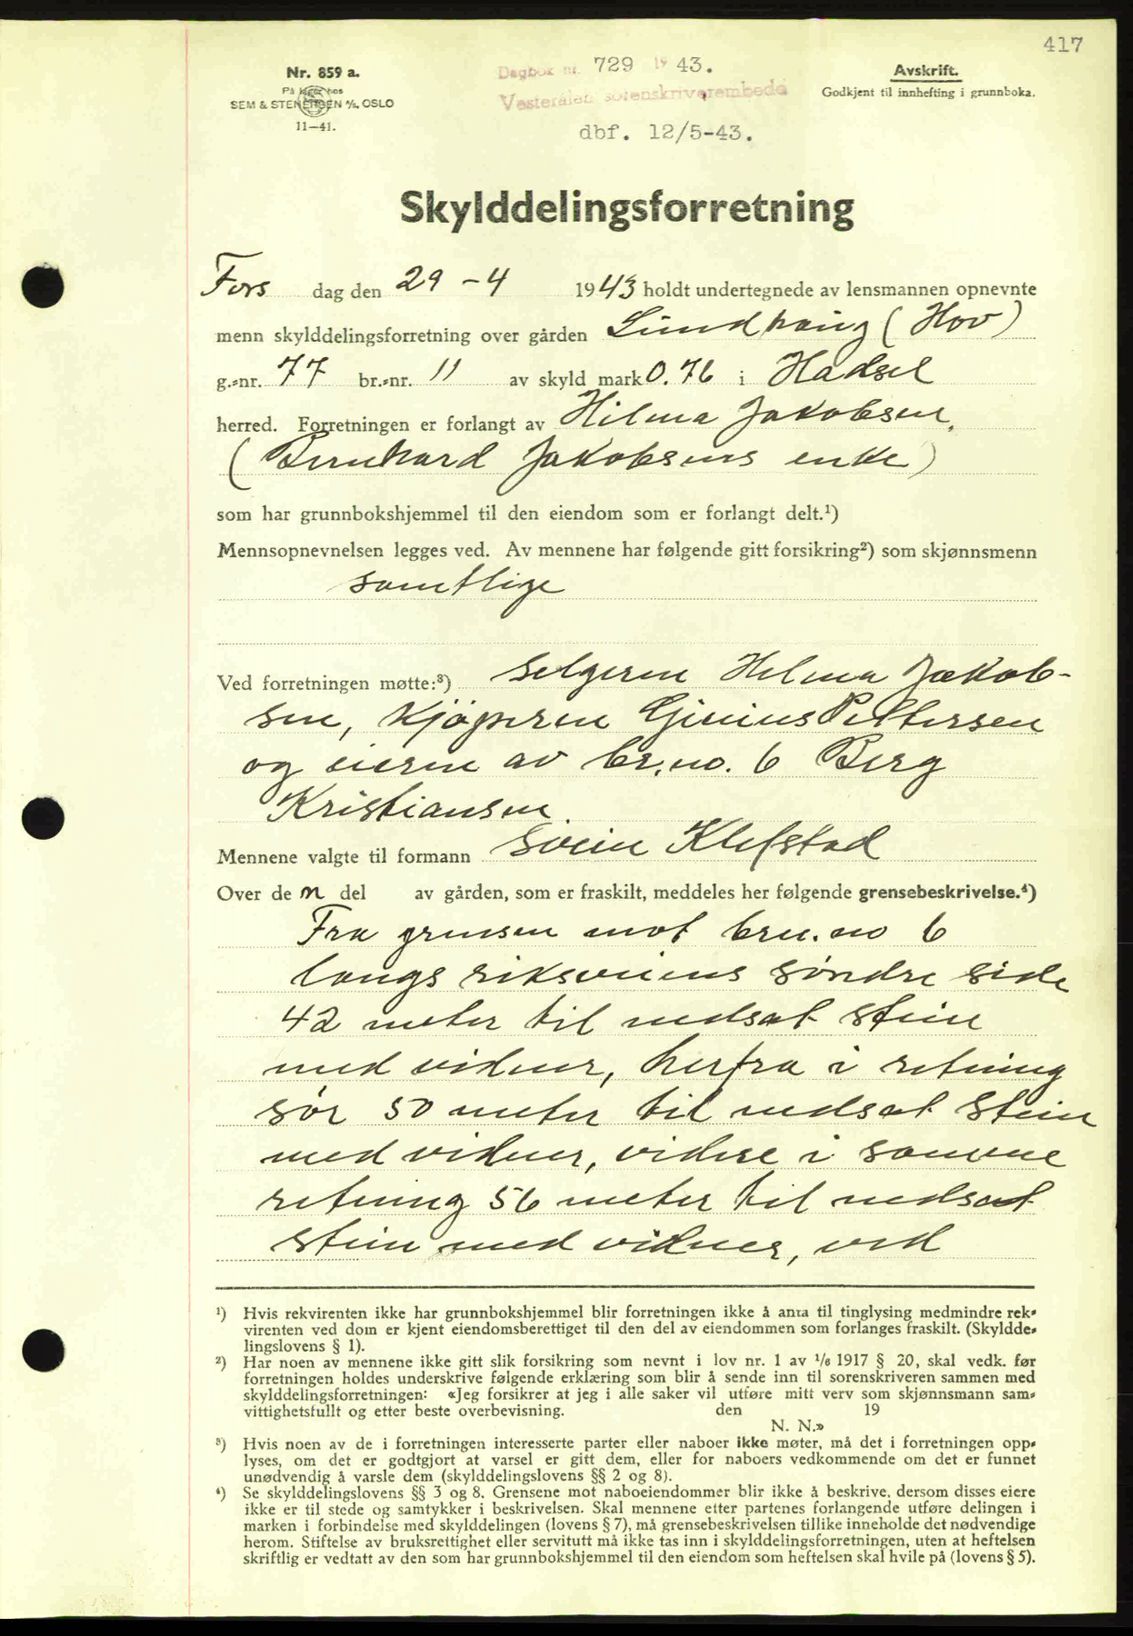 417
Nr. 859 a.
På lager hos
SEM & STENERSEN A/S. OSLO
11—41.
Dagbok nr. 729 19 43.
Vesterålen sorenskriverembede
dbf. 12/5-43.
Avskrift.
Godkjent til innhefting i grunnboka.
Skylddelingsforretning
Fors dag den 29 - 4 1943 holdt undertegnede av lensmannen opnevnte
menn skylddelingsforretning over gården Lundhaug (Hov)
g.-nr. 77 br.-nr. 11 av skyld mark 0.76 i Hadsel
herred. Forretningen er forlangt av Hilma Jakobsen,
(Bernhard Jakobsens enke)
som har grunnbokshjemmel til den eiendom som er forlangt delt.¹)
Mennsopnevnelsen legges ved. Av mennene har følgende gitt forsikring²) som skjønnsmenn
samtlige
Ved forretningen møtte:³) selgeren Hilma Jakob-
sen, kjøperen Pettersen
og eieren av br.no. 6 Berg
Kristiansen.
Mennene valgte til formann Svein Klefstad
Over de n del av gården, som er fraskilt, meddeles her følgende grensebeskrivelse.⁴)
Fra grensen mot bru.no 6
langs riksveiens søndre side
42 meter til nedsat stein
med vidner, herfra i retning
sør 50 meter til nedsat stein
med vidner, videre i samme
retning 56 meter til nedsat
stein med vidner, ved
¹) Hvis rekvirenten ikke har grunnbokshjemmel blir forretningen ikke å anta til tinglysing medmindre rek-
virenten ved dom er kjent eiendomsberettiget til den del av eiendommen som forlanges fraskilt. (Skyldde-
lingslovens § 1).
²) Har noen av mennene ikke gitt slik forsikring som nevnt i lov nr. 1 av 1/6 1917 § 20, skal vedk. før
forretningen holdes underskrive følgende erklæring som blir å sende inn til sorenskriveren sammen med
skylddelingsforretningen: «Jeg forsikrer at jeg i alle saker vil utføre mitt verv som skjønnsmann sam-
vittighetsfullt og etter beste overbevisning. den 19
N. N.»
³) Hvis noen av de i forretningen interesserte parter eller naboer ikke møter, må det i forretningen opp-
lyses, om det er godtgjort at varsel er gitt dem, eller for naboers vedkommende om det er funnet
unødvendig å varsle dem (skylddelingslovens §§ 2 og 8).
⁴) Se skylddelingslovens §§ 3 og 8. Grensene mot naboeiendommer blir ikke å beskrive, dersom disses eiere
ikke er til stede og samtykker i beskrivelsen. Skal mennene etter partenes forlangende utføre delingen i
marken i forbindelse med skylddelingen (lovens § 7), må grensebeskrivelsen tillike inneholde det nødvendige
herom. Stiftelse av bruksrettighet eller servitutt må ikke tas inn i skylddelingsforretningen, uten at heftelsen
skriftlig er vedtatt av den som har grunnbokshjemmel til den eiendom som heftelsen skal hvile på (lovens § 5).